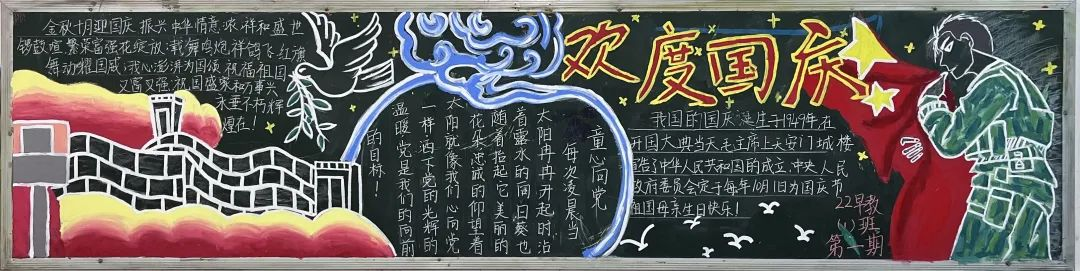 金秋十月迎国庆,振兴中华情意浓,祥和盛世
锣鼓喧,繁荣富强花绽放;载舞鸣炮祥鸽飞,红旗
舞动耀国威;我心澎湃为国颂,祝福祖国
又富又强;祝国盛家和万事兴,
永垂不朽辉
煌在!
欢度国庆
童心向党
每次凌晨当
太阳冉冉开起时,沾
着露水的向日葵也
随着抬起它美丽的
花朵,忠诚的仰望着
太阳就像我们心向党
一样,洒下党的光辉的
温暖,党是我们的向前
的目标!
我国的国庆诞生于1949年在
开国大典当天毛主席上天安门城楼
宣告了中华人民共和国的成立,中央人民
政府委员会定于每年10月1日为国庆节
祖国母亲生日快乐!
22早教
(1)班
第一期